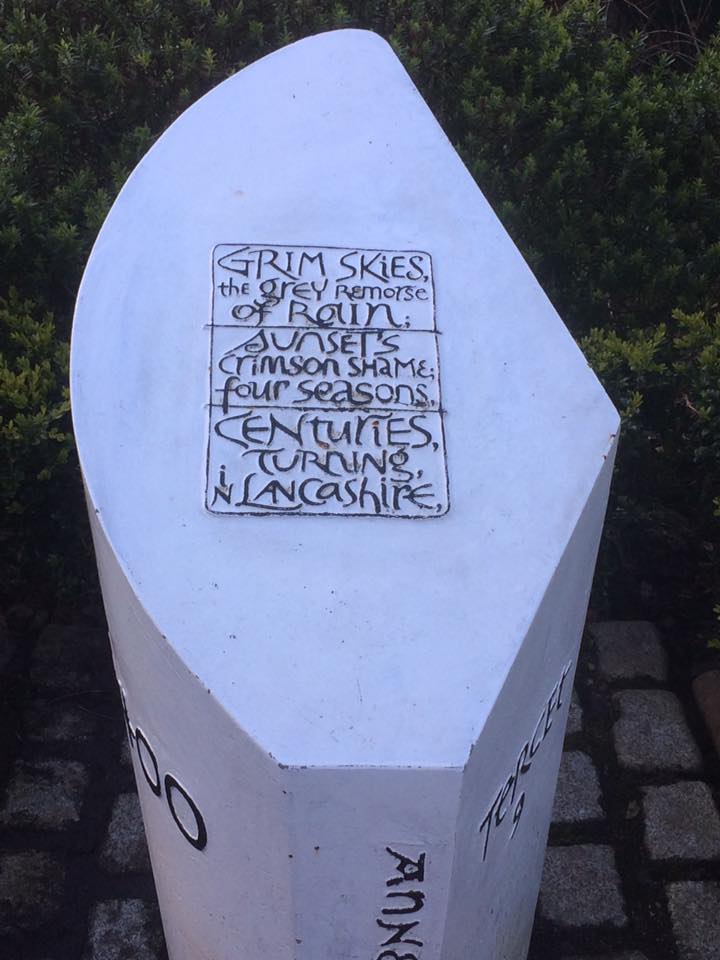 GRIM SKiES,
the grey Remorse
of Rain;
SUNSET'S
Crimson SHAME;
four seasons,
CENturiES,
TURNING,
iN LANCashire,
TERCET
9